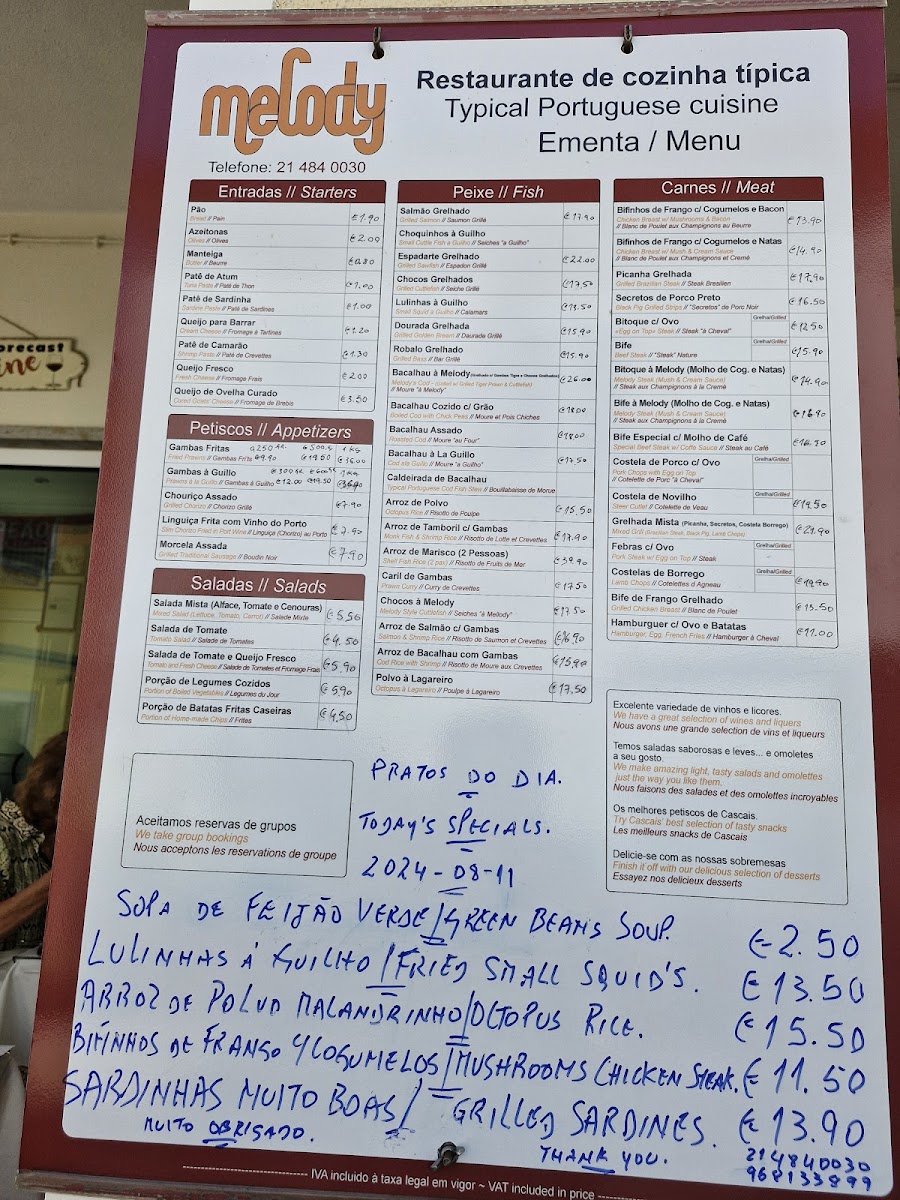 melody
Restaurante de cozinha típica
Typical Portuguese cuisine
Ementa / Menu
Telefone: 21 484 0030
Entradas // Starters
Pão €1.90
Bread // Pain
Azeitonas €2.00
Olives // Olives
Manteiga €0.80
Butter // Beurre
Patê de Atum €1.00
Tuna Paste // Paté de Thon
Patê de Sardinha €1.00
Sardine Paste // Paté de Sardines
Queijo para Barrar €1.20
Cream Cheese // Fromage à Tartines
Patê de Camarão €1.30
Shrimp Paste // Paté de Crevettes
Queijo Fresco €2.00
Fresh Cheese // Fromage Frais
Queijo de Ovelha Curado €3.50
Cured Goats' Cheese // Fromage de Brebis
Petiscos // Appetizers
Gambas Fritas
Fried Prawns // Gambas Frits
Gambas à Guilho
Prawns à la Guilho // Gambas à Guilho €12.00 €19.50
Chouriço Assado €7.90
Grilled Chorizo // Chorizo Grillé
Linguiça Frita com Vinho do Porto €7.90
Slim Chorizo Fried in Port Wine // Linguiça (Chorizo) au Porto
Morcela Assada €7.90
Grilled Traditional Sausage // Boudin Noir
Saladas // Salads
Salada Mista (Alface, Tomate e Cenouras) €5.50
Mixed Salad (Lettuce, Tomato, Carrot) // Salade Mixte
Salada de Tomate €4.50
Tomato Salad // Salade de Tomates
Salada de Tomate e Queijo Fresco €5.90
Tomato and Fresh Cheese // Salade de Tomates et Fromage Frais
Porção de Legumes Cozidos €5.90
Portion of Boiled Vegetables // Legumes du Jour
Porção de Batatas Fritas Caseiras €4.50
Portion of Home-made Chips // Frites
Aceitamos reservas de grupos
We take group bookings
Nous acceptons les reservations de groupe
Peixe // Fish
Salmão Grelhado €17.90
Grilled Salmon // Saumon Grillé
Choquinhos à Guilho
Small Cuttle Fish à Guilho // Seiches "a Guilho"
Espadarte Grelhado €22.00
Grilled Sawfish // Espadon Grillé
Chocos Grelhados €17.50
Grilled Cuttlefish // Seiche Grillé
Lulinhas à Guilho €13.50
Small Squid à Guilho // Calamars
Dourada Grelhada €15.90
Grilled Golden Bream // Daurade Grillé
Robalo Grelhado €15.90
Grilled Bass // Bar Grillé
Bacalhau à Melody (Grelhado c/ Gambas Tigre e Chocos Grelhados) €26.00
Melody's Cod - (Baked w/ Grilled Tiger Prawn & Cuttlefish)
// Moure "à Melody"
Bacalhau Cozido c/ Grão €18.00
Boiled Cod with Chick Peas // Moure et Pois Chiches
Bacalhau Assado €18.00
Roasted Cod // Moure "au Four"
Bacalhau à La Guilho €17.50
Cod ala Guilho // Moure "a Guilho"
Caldeirada de Bacalhau
Typical Portuguese Cod Fish Stew // Bouillabaisse de Morue
Arroz de Polvo €15.50
Octopus Rice // Risotto de Poulpe
Arroz de Tamboril c/ Gambas €17.90
Monk Fish & Shrimp Rice // Risotto de Lotte et Crevettes
Arroz de Marisco (2 Pessoas) €39.90
Shell Fish Rice (2 pax) // Risotto de Fruits de Mer
Caril de Gambas €17.50
Prawn Curry // Curry de Crevettes
Chocos à Melody €17.50
Melody Style Cuttlefish // Seiches "à Mellody"
Arroz de Salmão c/ Gambas €16.90
Salmon & Shrimp Rice // Risotto de Saumon et Crevettes
Arroz de Bacalhau com Gambas €15.90
Cod Rice with Shrimp // Risotto de Moure aux Crevettes
Polvo à Lagareiro €17.50
Octopus à Lagareiro // Poulpe à Lagareiro
Carnes // Meat
Bifinhos de Frango c/ Cogumelos e Bacon €13.90
Chicken Breast w/ Mushrooms & Bacon
// Blanc de Poulet aux Champignons au Beurre
Bifinhos de Frango c/ Cogumelos e Natas €14.90
Chicken Breast w/ Mush & Cream Sauce
// Blanc de Poulet aux Champignons et Cremé
Picanha Grelhada €17.90
Grilled Brazilian Steak // Steak Bresilien
Secretos de Porco Preto €16.50
Black Pig Grilled Strips // "Secretos" de Porc Noir
Bitoque c/ Ovo Grelha/Grilled €12.50
«Egg on Top» Steak // Steak "à Cheval"
Bife Grelha/Grilled €15.90
Beef Steak // "Steak" Nature
Bitoque à Melody (Molho de Cog. e Natas) €14.90
Melody Steak (Mush & Cream Sauce)
// Steak aux Champignons à la Cremé
Bife à Melody (Molho de Cog. e Natas) €16.90
Melody Steak (Mush & Cream Sauce)
// Steak aux Champignons à la Cremé
Bife Especial c/ Molho de Café
Special Beef Steak w/ Coffe Sauce // Steak au Café
Costela de Porco c/ Ovo Grelha/Grilled
Pork Chops with Egg on Top
// Cotelette de Porc "à Cheval"
Costela de Novilho Grelha/Grilled €19.50
Steer Cutlet // Cotelette de Veau
Grelhada Mista (Picanha, Secretos, Costeta Borrego) €21.90
Mixed Grill (Brazilian Steak, Black Pig, Lamb Chops)
Febras c/ Ovo Grelha/Grilled
Pork Steak w/ Egg on Top // Steak
Costelas de Borrego Grelha/Grilled €19.90
Lamb Chops // Cotelettes d'Agneau
Bife de Frango Grelhado €13.50
Grilled Chicken Breast // Blanc de Poulet
Hamburguer c/ Ovo e Batatas €11.00
Hamburger, Egg, French Fries // Hamburger à Cheval
Excelente variedade de vinhos e licores.
We have a great selection of wines and liquers
Nous avons une grande selection de vins et liqueurs
Temos saladas saborosas e leves... e omoletes
a seu gosto.
We make amazing light, tasty salads and omolettes
just the way you like them.
Nous faisons des salades et des omolettes incroyables
Os melhores petiscos de Cascais.
Try Cascais' best selection of tasty snacks
Les meilleurs snacks de Cascais
Delicie-se com as nossas sobremesas
Finish it off with our delicious selection of desserts
Essayez nos delicieux desserts
PRATOS DO DIA.
TODAY'S SPECIALS.
2024-08-11
SOPA DE FEIJÃO VERDE/GREEN BEANS SOUP. €2.50
LULINHAS Á GUILHO/FRIED SMALL SQUID'S. €13.50
ARROZ DE POLVO MALANDRINHO/OCTOPUS RICE. €15.50
BIFINHOS DE FRANGO Y COGUMELOS/MUSHROOMS CHICKEN STEAK. €11.50
SARDINHAS MUITO BOAS/ GRILLED SARDINES. €13.90
MUITO OBRIGADO. THANK YOU.
214840030
968133899
IVA incluido à taxa legal em vigor ~ VAT included in price
orecast
ine